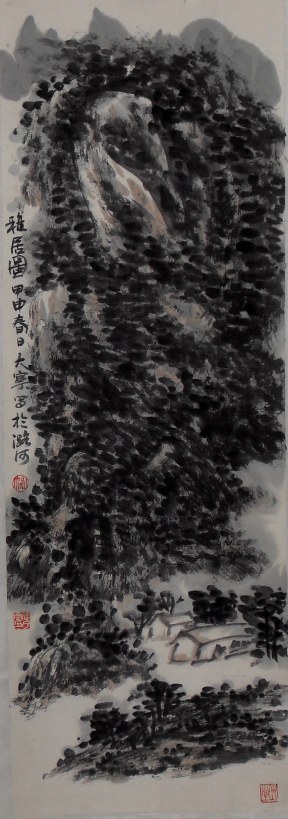 雅居圖甲申春日大寧写於潞河